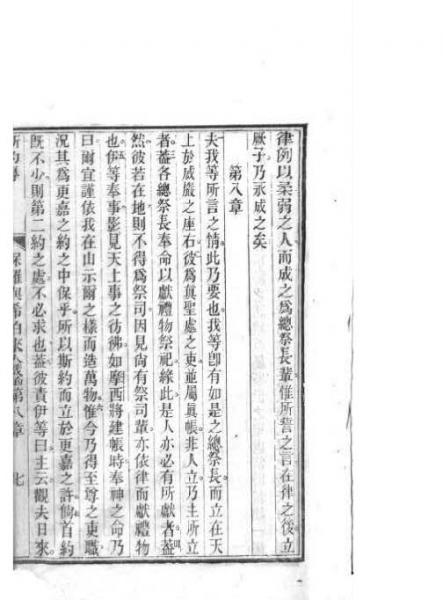 律例以柔弱之人而成之爲總祭長輩惟所誓之言在律之後立
厥子乃永成之矣
第八章
夫我等所言之情此乃要也我等卽有如是之總祭長而立在天
上於威嚴之座右彼爲眞聖處之吏並屬眞帳非人立乃主所立
者蓋各總祭長奉命以獻禮物祭祀緣此是人亦必有所獻者蓋
然彼若在地則不得爲祭司因見尙有祭司輩亦依律而獻禮物
也伊等奉事影見天上事之彷彿如摩西將建帳時奉神之命乃
曰爾宜謹依我在山示爾之樣而造萬物惟今乃得至尊之吏職
況其爲更嘉之約之中保乎所以斯約而立於更嘉之許倘首約
既不少則第二約之處不必求也蓋彼責伊等曰主云觀夫日來
保羅與希伯來人書第八章 七